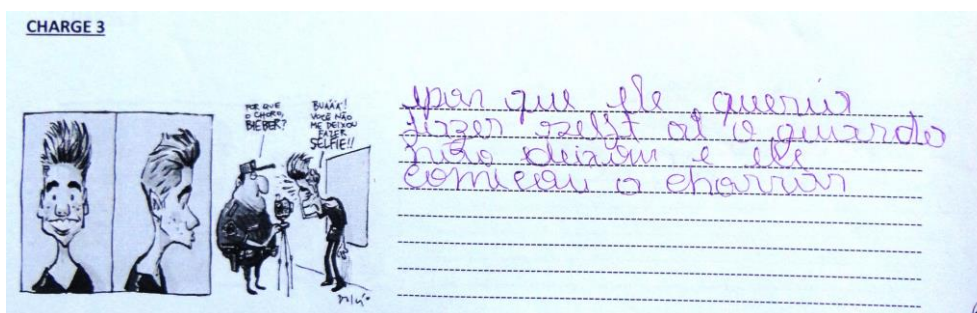 CHARGE 3
POR QUE
O CHORO,
BIEBER?
BUÁÁÁ!
VOCÊ NÃO
ME DEIXOU
FAZER
SELFIE!!
por que ele queria
fazer selft aí o guarda
não deixou e ele
começou a chorrar